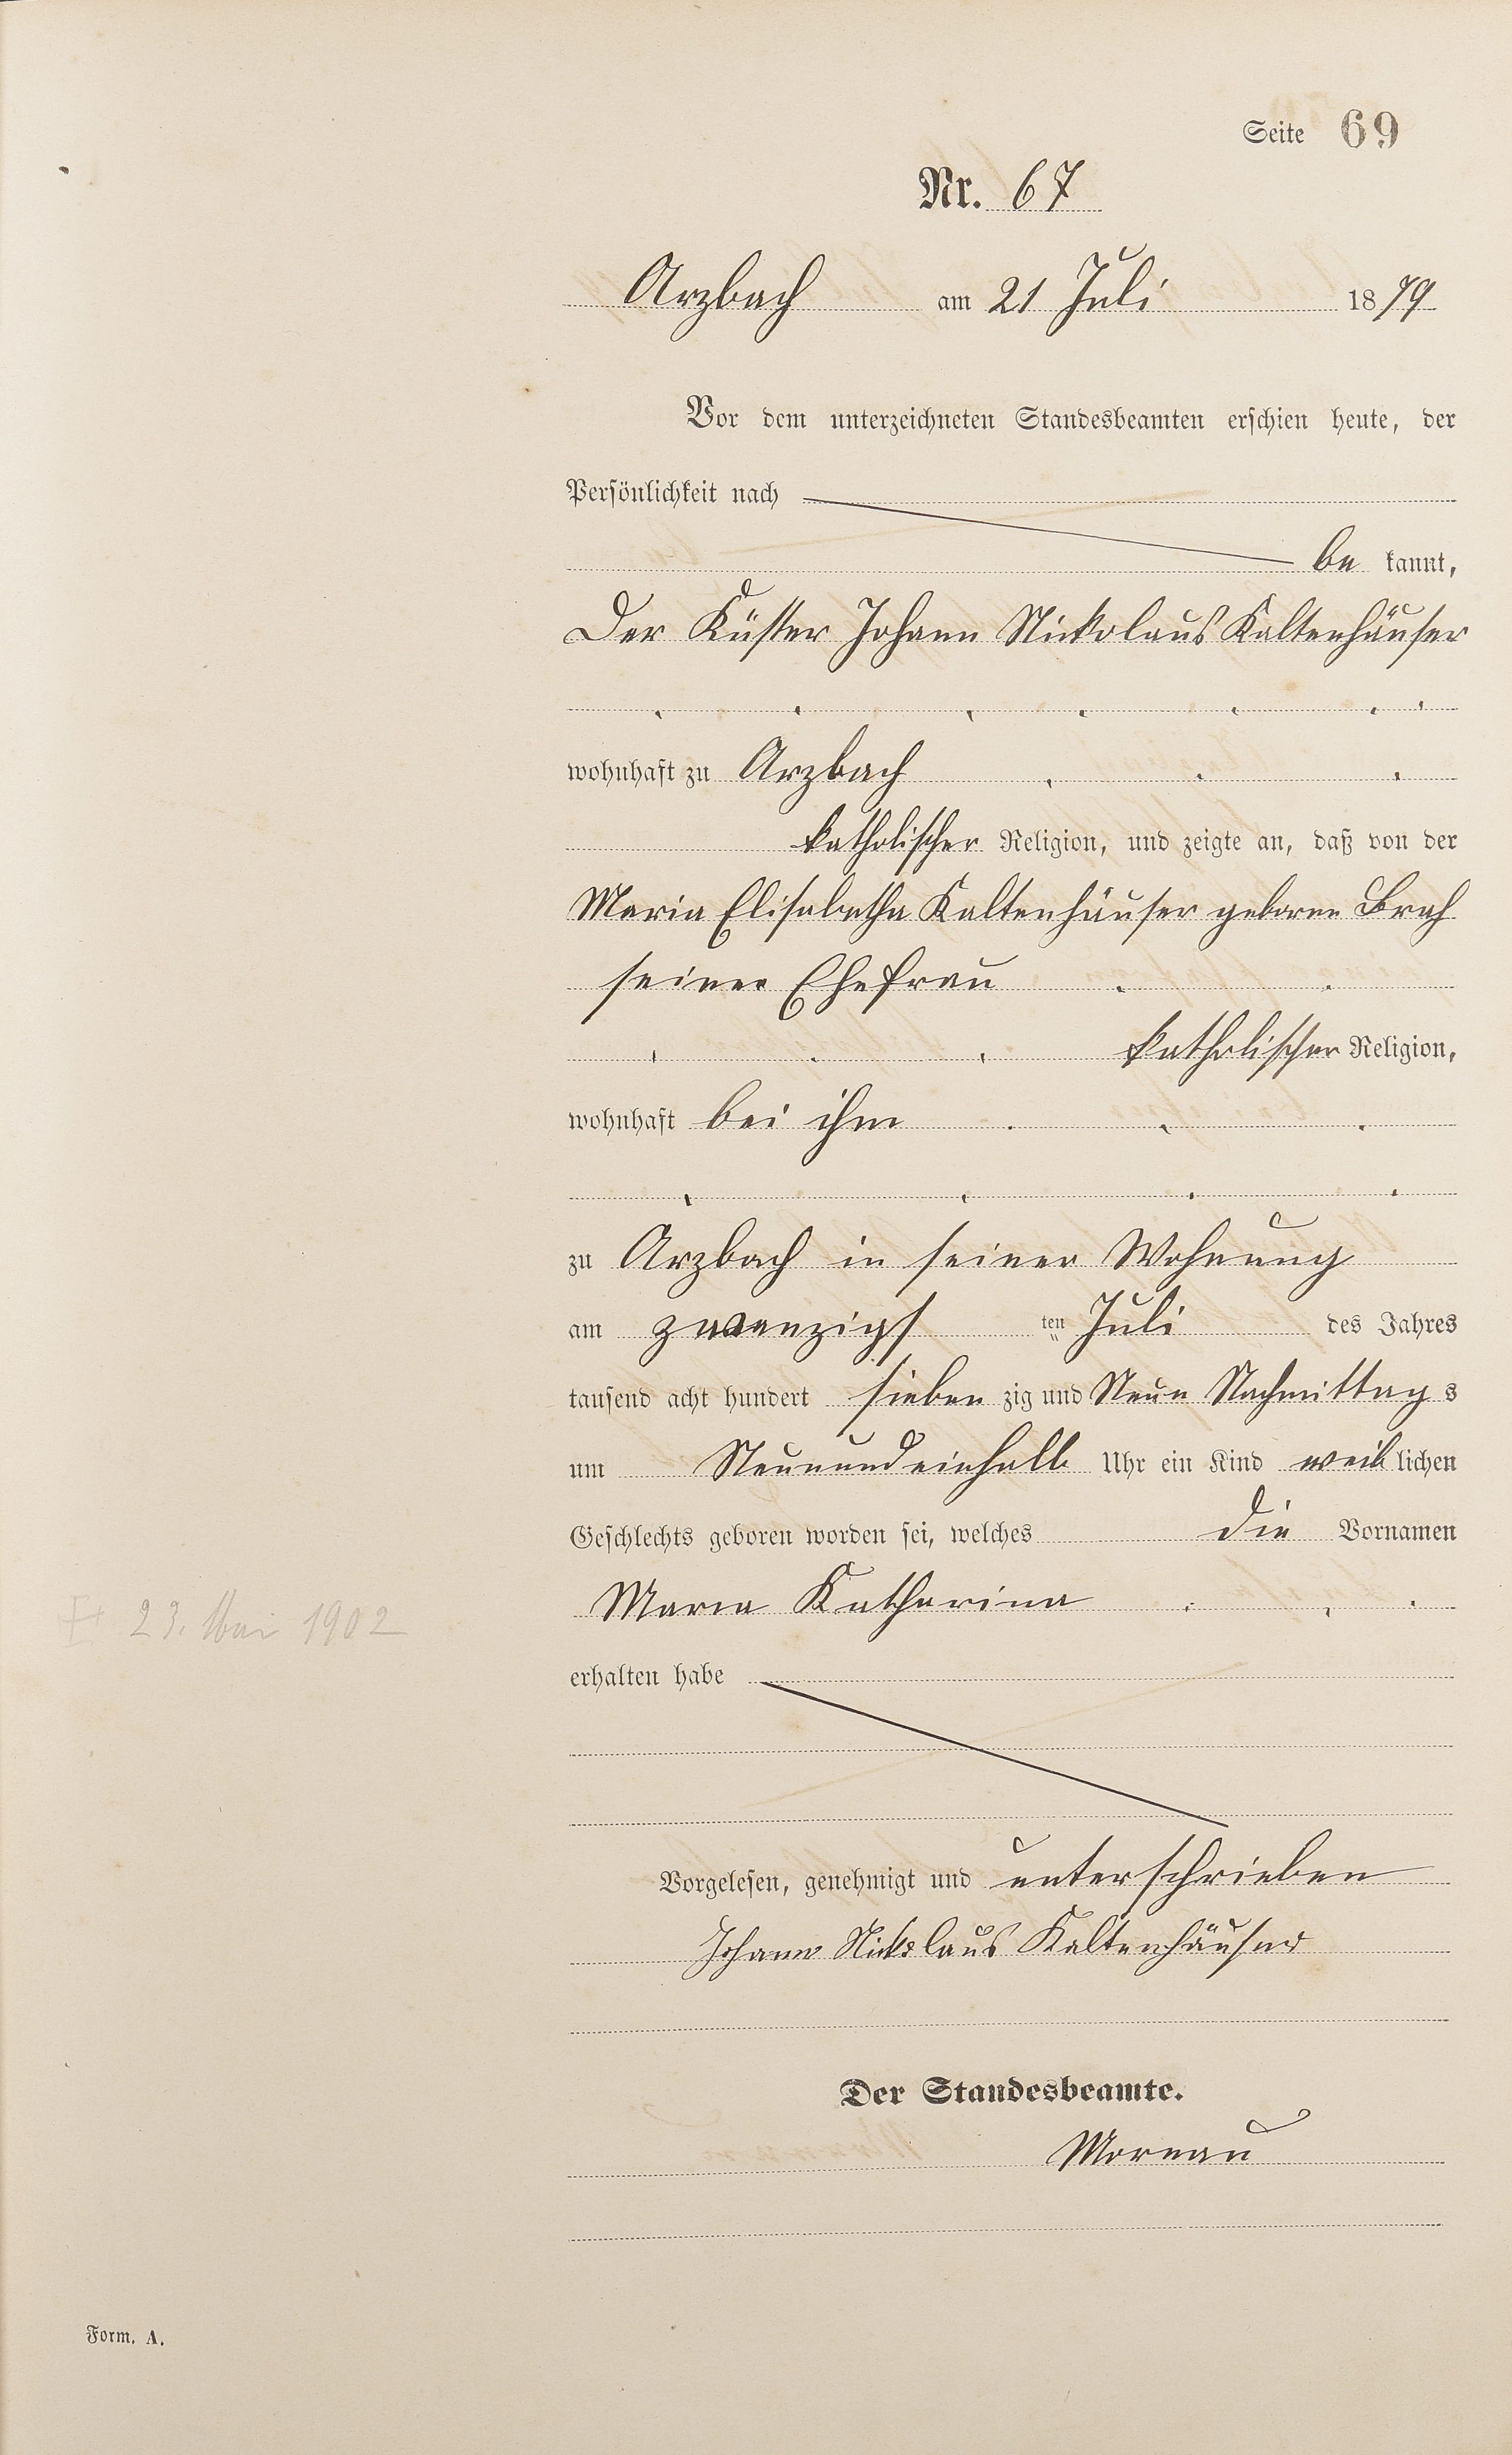 Seite 69
Nr. 67
Arzbach am 21 Juli 1879
Vor dem unterzeichneten Standesbeamten erschien heute, der
Persönlichkeit nach
be kannt,
Der Küster Johann Nickolaus Kaltenhäuser
wohnhaft zu Arzbach
katholischer Religion, und zeigte an, daß von der
Maria Elisabetha Kaltenhäuser geborne
seiner Ehefrau
katholischer Religion,
wohnhaft bei ihm
zu Arzbach in seiner Wohnung
am zwanzigsten Juli des Jahres
tausend acht hundert siebenzig und Neun Nachmittags
um Neunundeinhalb Uhr ein Kind weiblichen
Geschlechts geboren worden sei, welches die Vornamen
Maria Katharina
23. Mai 1902
erhalten habe
Vorgelesen, genehmigt und unterschrieben
Johann Nickolaus Kaltenhäuser
Der Standesbeamte.
Mornau
Form. A.